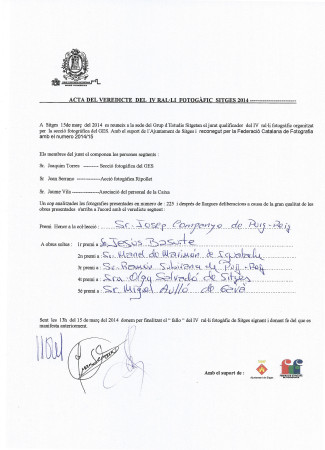 ACTA DEL VEREDICTE DEL IV RAL·LI FOTOGÀFIC SITGES 2014
A Sitges 15de març del 2014 es reuneix a la sede del Grup d'Estudis Sitgetan el jurat qualificador del IV ral·li fotogràfic organitzat
per la secció fotogràfica del GES. Amb el suport de l'Ajuntament de Sitges i reconegut per la Federació Catalana de Fotografia
amb el numero 2014/15
Els membres del jurat el componen les persones seguents :
Sr. Joaquim Torres --------- Secció fotogràfica del GES
Sr. Joan Serrano --------- Associació fotogràfica Ripollet
Sr. Jaume Vila ----------- Asociació del personal de la Caixa.
Un cop analitzades les fotografies presentades en numero de : 225 i després de llargues deliberacions a causa de la gran qualitat de les
obres presentades s'arriba a l'acord amb el veredicte seguent :
Premi Honor a la col·lecció : Sr. Josep Companyo de Puig-Reig
A obres soltes : 1r premi a Sr. Jesus Basute
2n premi a Sr. Manel de Marimon de Igualada
3r premi a Sr. Ramon Subirana de Puig-Reig
4t premi a Sra Olga Salvadó de Sitges
5è premi a Sr. Miguel Aulló de Gavà
Sent les 13h. del 15 de març del 2014 donem per finalitzat el " fallo " del IV ral·li fotogràfic de Sitges signant i donant fè del que es
manifesta anteriorment.
Amb el suport de :